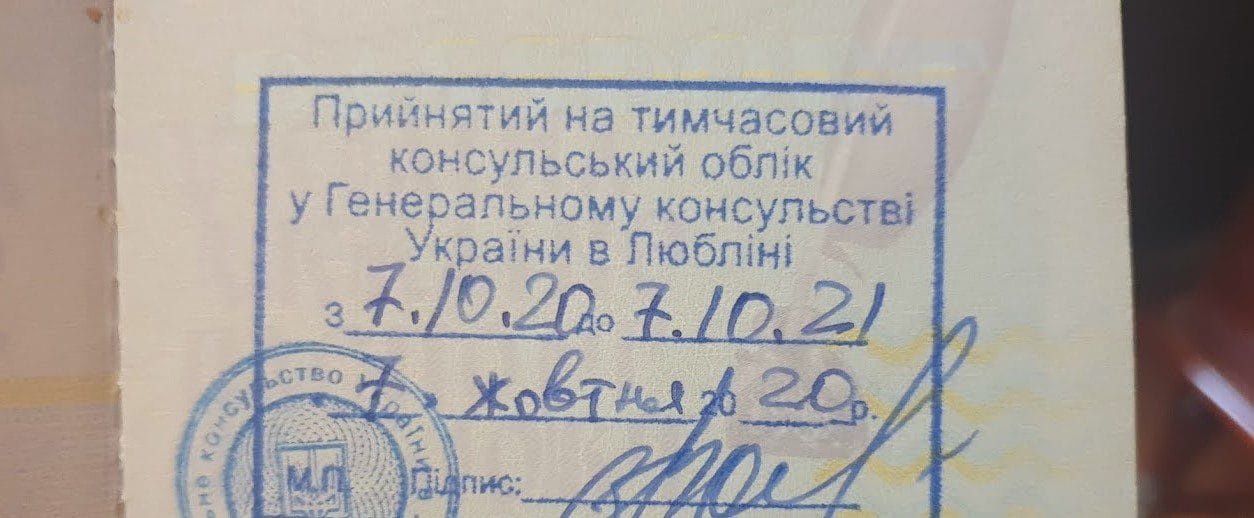 Прийнятий на тимчасовий
консульський облік
у Генеральному консульстві
України в Любліні
з 7.10.20 до 7.10.21
7. жовтня 2020 р.
М.П. Підпис:
не консульство України